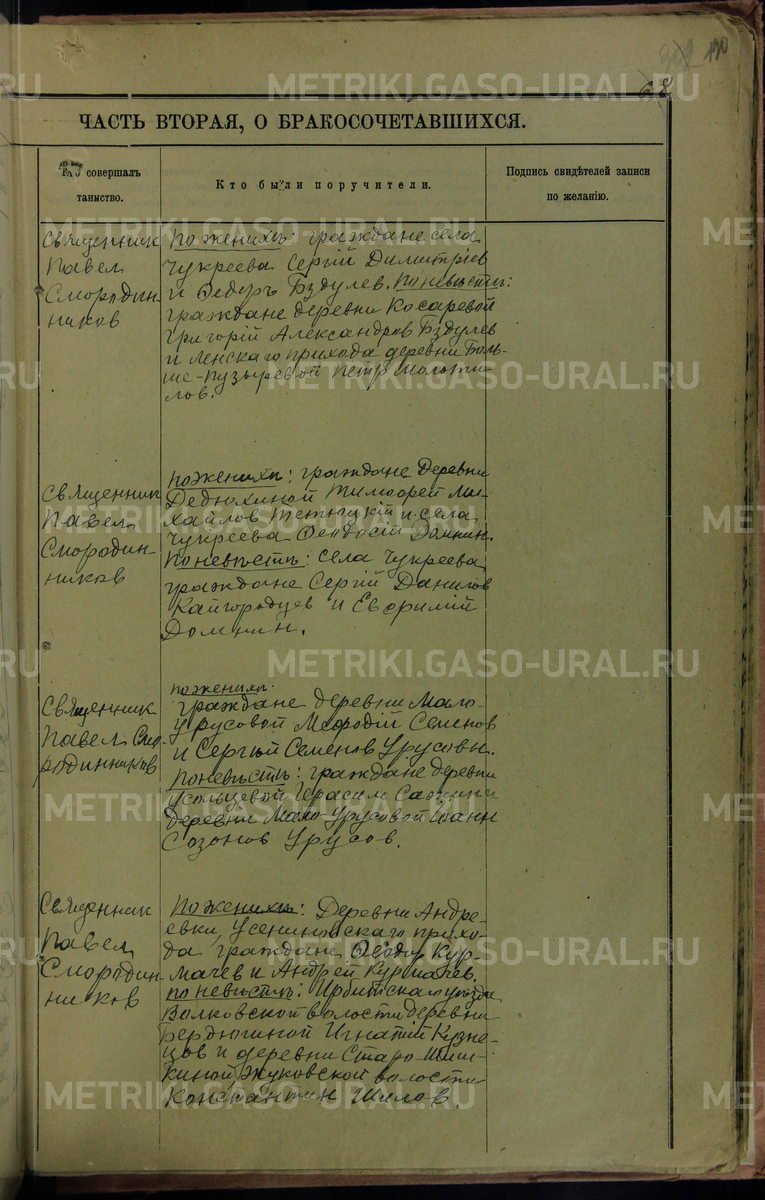 190
68
ЧАСТЬ ВТОРАЯ, О БРАКОСОЧЕТАВШИХСЯ.
Кто совершалъ
таинство.
Кто были поручители.
Подпись свидѣтелей записи
по желанію.
Священник
Павел
Смородин-
ников
По женихѣ: граждане села
Чукреева Сергій Димитріев
и Ѳедоръ Бздулев. По невѣстѣ:
граждане деревни Косаревой
Григорій Александров Бздулев
и Ленскаго прихода деревни Боль-
ше-Пузыревой Петр Молоти-
лов.
Священник
Павел
Смородин-
ников
По женихѣ: граждане деревни
Дедюхиной Тимофей Ми-
хайлов и села
Чукреева Ѳеодосій Домнин.
По невѣстѣ: села Чукреева
граждане Сергій Данилов
Кайгородцев и Евфимій
Домнин.
Священник
Павел Смо-
родинников
По женихѣ:
граждане деревни Мало-
Урусовой Меѳодій Семенов
и Сергѣй Семенов Урусовы.
По невѣстѣ: граждане деревни
Усольцевой Герасим Сажин и
деревни Мало-Урусовой Іоанн
Созонов Урусов.
Священник
Павел
Смородин-
ников
По женихѣ: Деревни Андре-
евки, Усениновскаго прихо-
да граждане Ѳеодор Кур-
мачев и Андрей Курмачев.
По невѣстѣ: Ирбитскаго уѣзда
Волковской волости деревни
Бердюгиной Игнатій Кузне-
цов и деревни Старо-Шиш-
киной, Жуковской волости
Константин Шилов.
METRIKI.GASO-URAL.RU